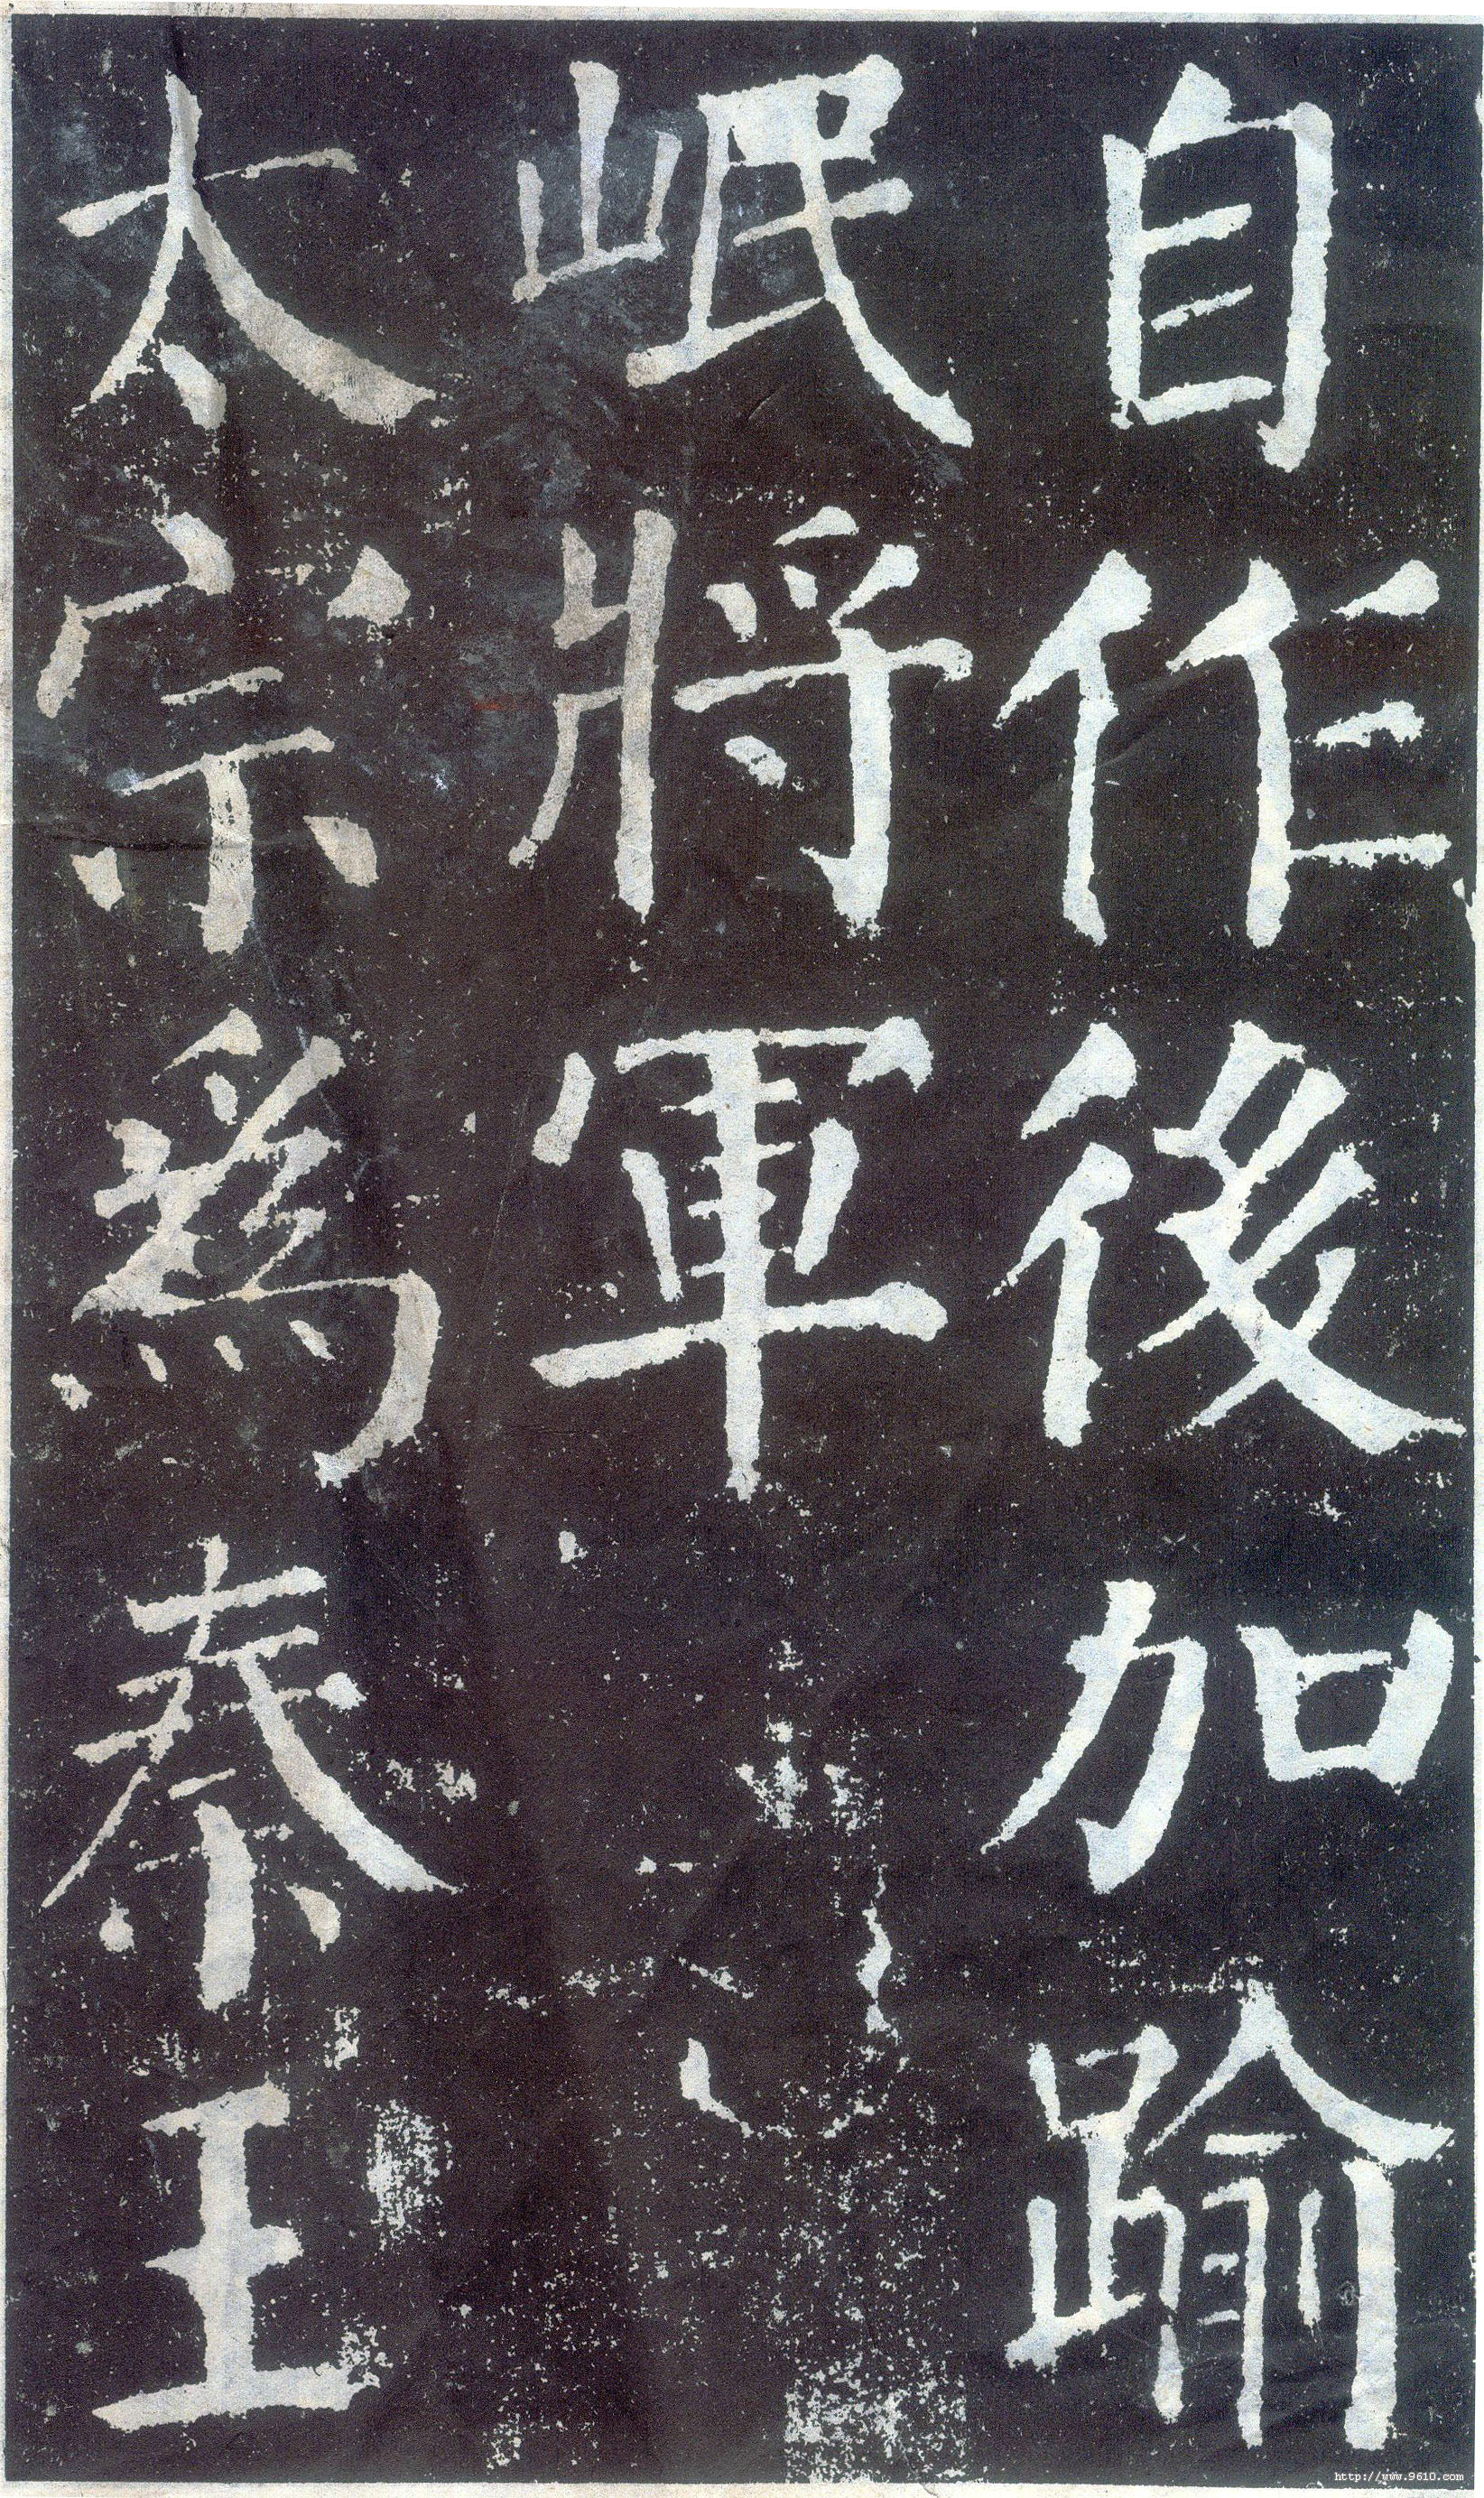 自作後加踰
岷將軍
太宗爲秦王
http://www.9610.com